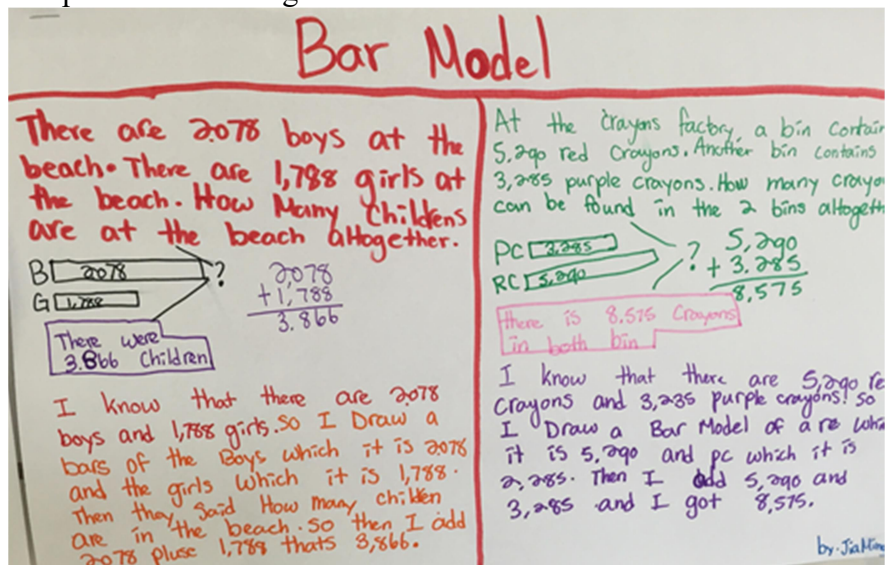 Bar Model
There are 2078 boys at the
beach. There are 1,788 girls at
the beach. How Many childrens
are at the beach altogether.
B 2078
G 1,788
?
2,078
+1,788
3.866
There were
3.866 children
I know that there are 2078
boys and 1,788 girls. so I Draw a
bars of the Boys which it is 2078
and the girls which it is 1,788.
Then they said How many children
are in the beach. so then I add
2078 pluse 1,788 thats 3,866.
At the Crayons factory, a bin contain
5,290 red Crayons. Another bin contains
3,285 purple crayons. How many crayo
can be found in the 2 bins altogeth
PC 3,285
RC 5,290
?
5,290
+ 3.285
8,575
there is 8.575 Crayons
in both bin
I know that there are 5,290 re
Crayons and 3,235 purple crayons! so
I Draw a Bar Model of a re whic
it is 5,290 and pc which it is
2,285. Then I add 5,290 and
3,285 and I got 8,575.
by-JiaMin